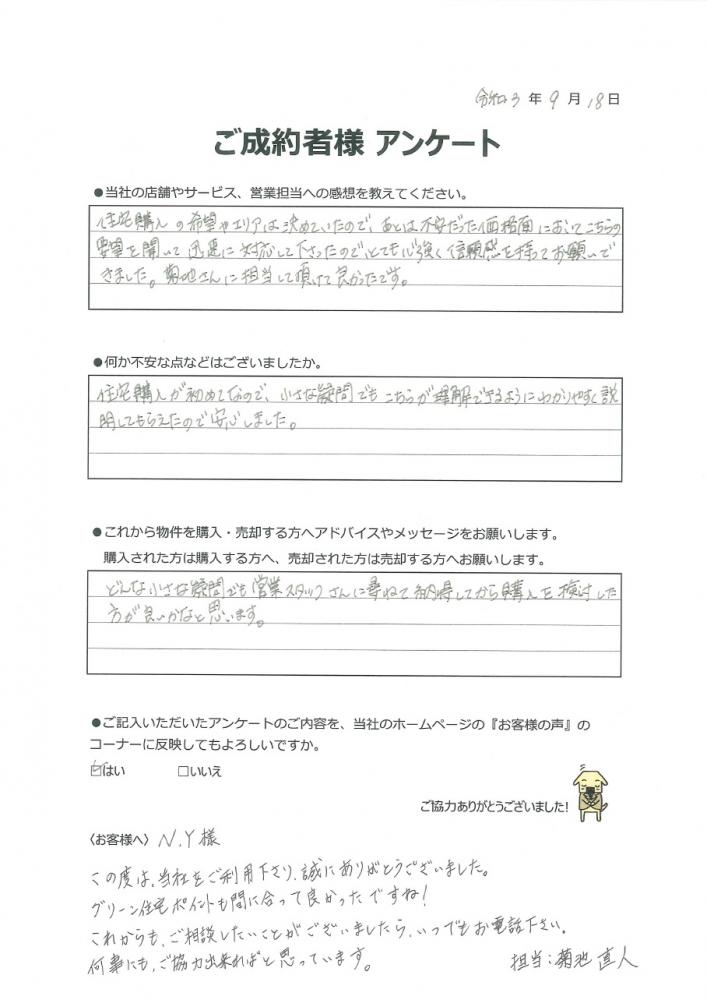 令和3年9月18日
ご成約者様 アンケート
●当社の店舗やサービス、営業担当への感想を教えてください。
住宅購入の希望やエリアは決めていたので、あとは不安だった価格面においてこちらの
要望を聞いて迅速に対応して下さったので、とても心強く信頼感を持ってお願いで
きました。菊地さんに担当して頂けて良かったです。
●何か不安な点などはございましたか。
住宅購入が初めてなので、小さな疑問でもこちらが理解できるようにわかりやすく説
明してもらえたので安心しました。
●これから物件を購入・売却する方へアドバイスやメッセージをお願いします。
購入された方は購入する方へ、売却された方は売却する方へお願いします。
どんな小さな疑問でも営業スタッフさんに尋ねて納得してから購入を検討した
方が良いかなと思います。
●ご記入いただいたアンケートのご内容を、当社のホームページの『お客様の声』の
コーナーに反映してもよろしいですか。
☑はい □いいえ
ご協力ありがとうございました!
〈お客様へ〉 N.Y様
この度は、当社をご利用下さり、誠にありがとうございました。
グリーン住宅ポイントも間に合って良かったですね!
これからも、ご相談したいことがございましたら、いつでもお電話下さい。
何事にも、ご協力出来ればと思っています。
担当:菊池 直人